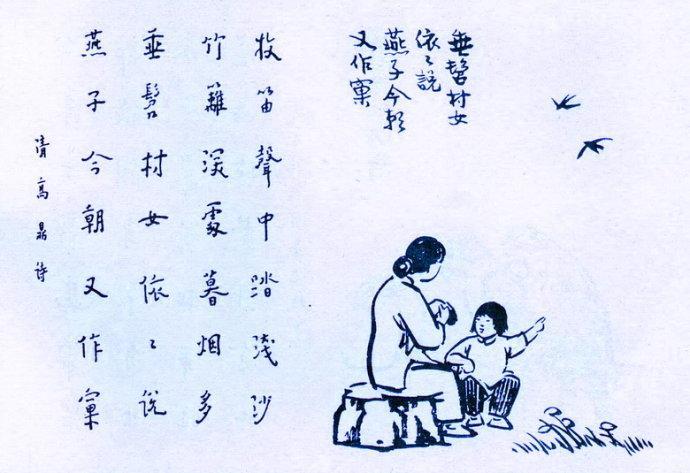 垂髫村女
依々說
燕子今朝
又作窠
牧笛聲中踏淺沙
竹籬深處暮烟多
垂髫村女依々說
燕子今朝又作窠
清高鼎诗